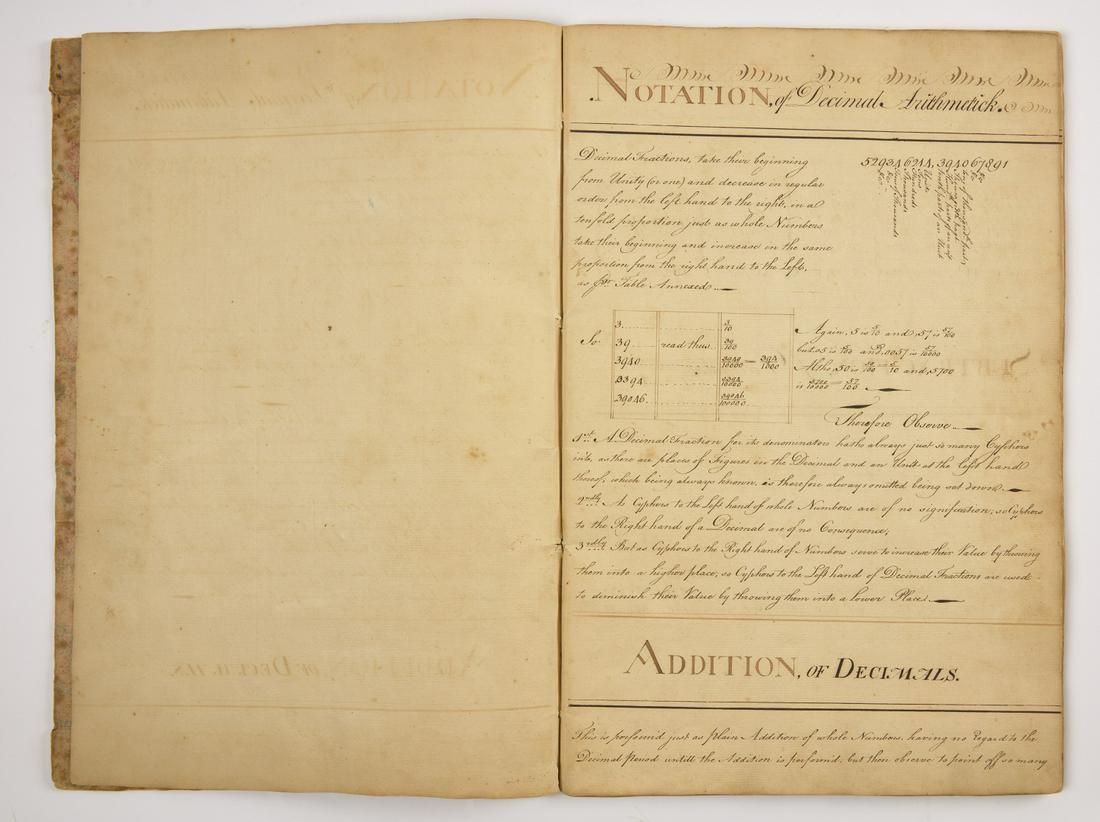 NOTATION, of Decimal Arithmetick.
Decimal Fractions, take their beginning
from Unity (or one) and decrease in regular
order from the left hand to the right, in a
tenfold proportion just as whole Numbers
take their beginning and increase in the same
proportion from the right hand to the Left,
as pr Table Annexed.
52934624,394067891
Units
Tens
Hundreds
Thousands
Tens of Thousands
So
3 3/10
39 read thus 39/100
3940 3940/10000 = 394/1000
39046 39046/100000
Again, ,5 is 5/10 and ,57 is 57/100
but ,05 is 5/100 and ,0057 is 57/10000
Altho ,50 is 50/100 = 5/10 and ,5700
is 5700/10000 = 57/100
Therefore Observe
1st. A Decimal Fraction for its denominator hath always just so many Cyphers
into, as there are places of Figures in the Decimal and an Unit at the left hand
thereof; which being always known, is therefore always omitted being set down.
2ndly. As Cyphers to the Left hand of whole Numbers are of no signification; so Cyphers
to the Right hand of a Decimal are of no Consequence;
3rdly But as Cyphers to the Right hand of Numbers serve to increase their Value by throwing
them into a higher place; so Cyphers to the Left hand of Decimal Fractions are used
to diminish their Value by throwing them into a lower Place.
ADDITION, OF DECIMALS.
This is perform'd just as plain Addition of whole Numbers, having no Regard to the
Decimal Period untill the Addition is perform'd, but then observe to point off so many